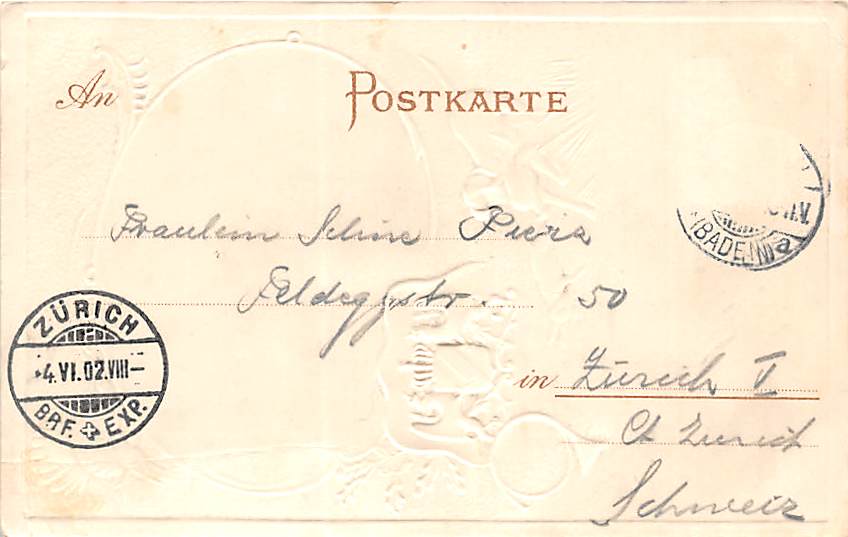 An POSTKARTE
Fräulein
Feldeggstr. 50
in Zürich V
Ct Zürich
Schweiz
ZÜRICH
4.VI.02.VIII—
BRF. EXP.
(BADEN) a